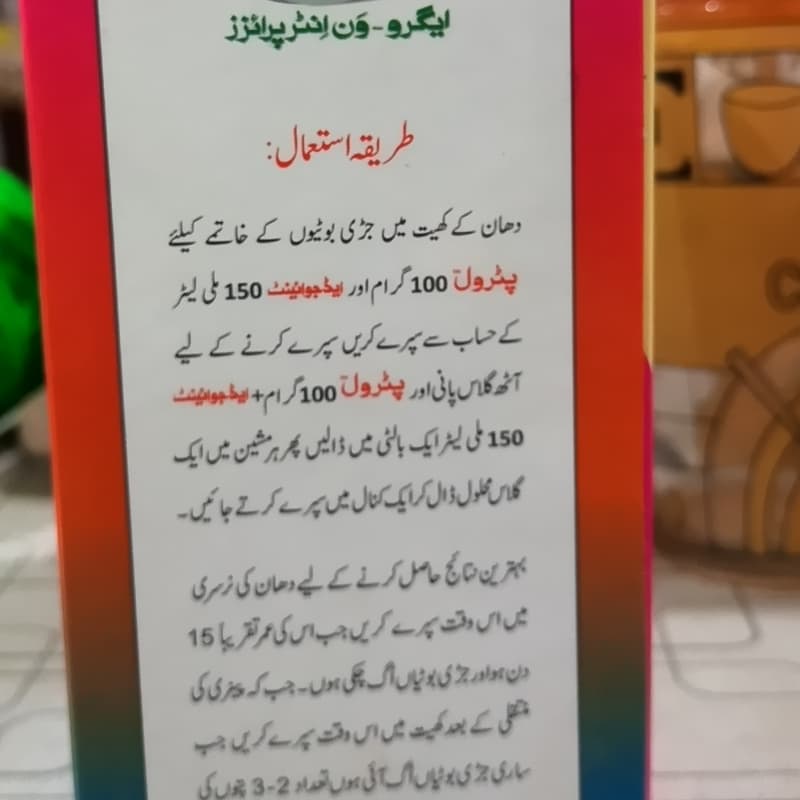 ایگرو-وَن اِنٹر پرائزز
طریقہ استعمال:
دھان کے کھیت میں جڑی بوٹیوں کے خاتمے کیلئے
پٹرول 100 گرام اور ایڈجوائینٹ 150 ملی لیٹر
کے حساب سے سپرے کریں سپرے کرنے کے لیے
آٹھ گلاس پانی اور پٹرول 100 گرام + ایڈجوائینٹ
150 ملی لیٹر ایک بالٹی میں ڈالیں پھر ہر مشین میں ایک
گلاس محلول ڈال کر ایک کنال میں سپرے کرتے جائیں۔
بہترین نتائج حاصل کرنے کے لیے دھان کی نرسری
میں اس وقت سپرے کریں جب اس کی عمر تقریباً 15
دن ہو اور جڑی بوٹیاں اُگ چکی ہوں۔ جب کہ پنیری کی
منتقلی کے بعد کھیت میں اس وقت سپرے کریں جب
ساری جڑی بوٹیاں اُگ آئی ہوں تعداد 2-3 پتوں کی